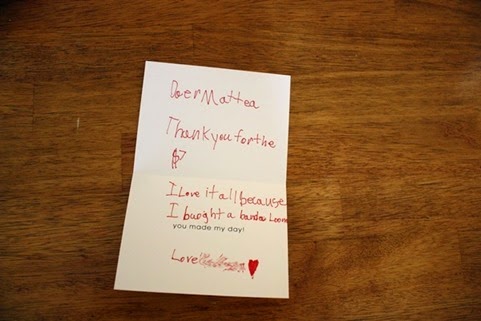 Doer Mattea
Thank you for the
$7
I Love it all because
I buoght a
you made my day!
Love